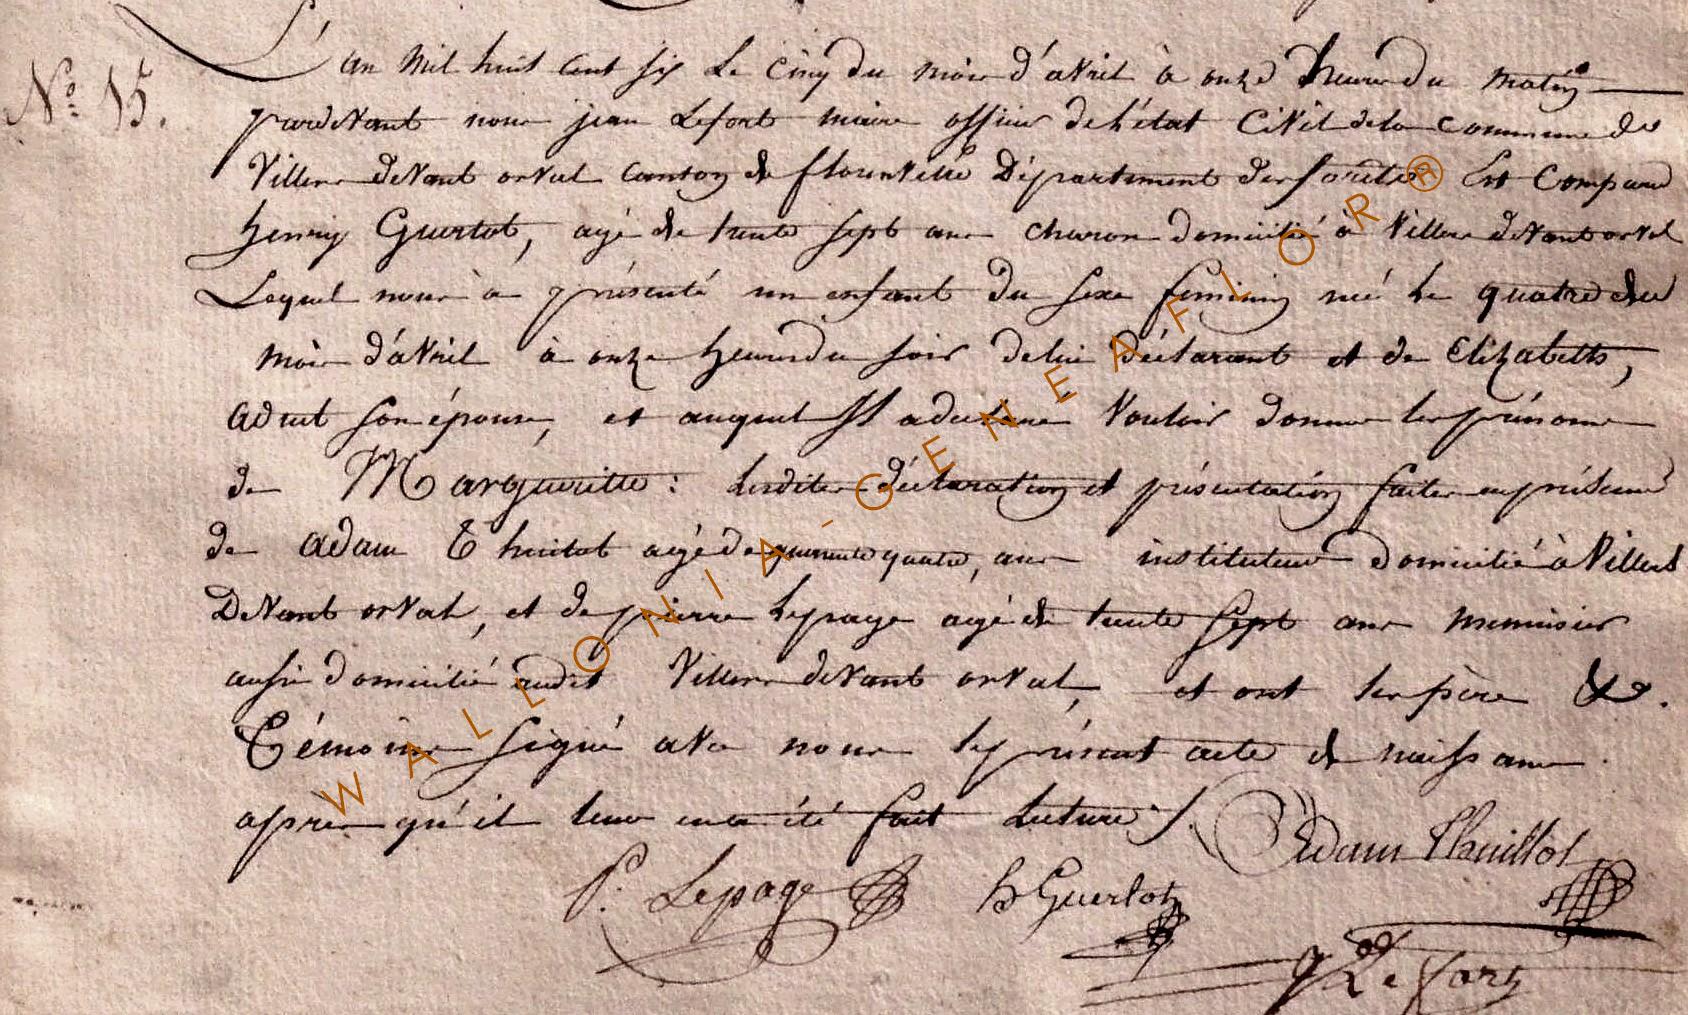 N.º 15.
L'an mil huit cent six le cinq du mois d'avril à onze heures du matin
pardevant nous jean Lefort maire officier de l'état Civil de la Commune de
Villers devant orval canton de florenville Département des forêts Est Comparu
henry Guerlot, agé de trente sept ans charon domicilié à Villers devant orval
Lequel nous à présenté un enfant du sexe feminin né le quatre du
mois d'avril à onze heures du soir de lui déclarant et de Elizabeth,
adnet son épouse, et auquel Il a déclaré vouloir donner les prénoms
de Margueritte: lesdites déclaration et présentation faites en présence
de adam Thuillot agé de quarante quatre, ans instituteur domicilié à Villers
Devant orval, et de pierre Lepage agé de trente sept ans menuisier
aussi domicilié audit Villers devant orval, et ont les père &.
Témoins signé avec nous le présent acte de naissance
apres qu'il leur en a été fait lecture ./.
Adam Thuillot
P. Lepage
h Guerlot
J Le fort
WALLONIA-GENEAFLOR®